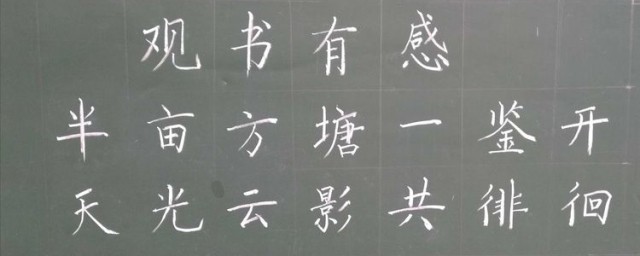 观书有感
半亩方塘一鉴开
天光云影共徘徊